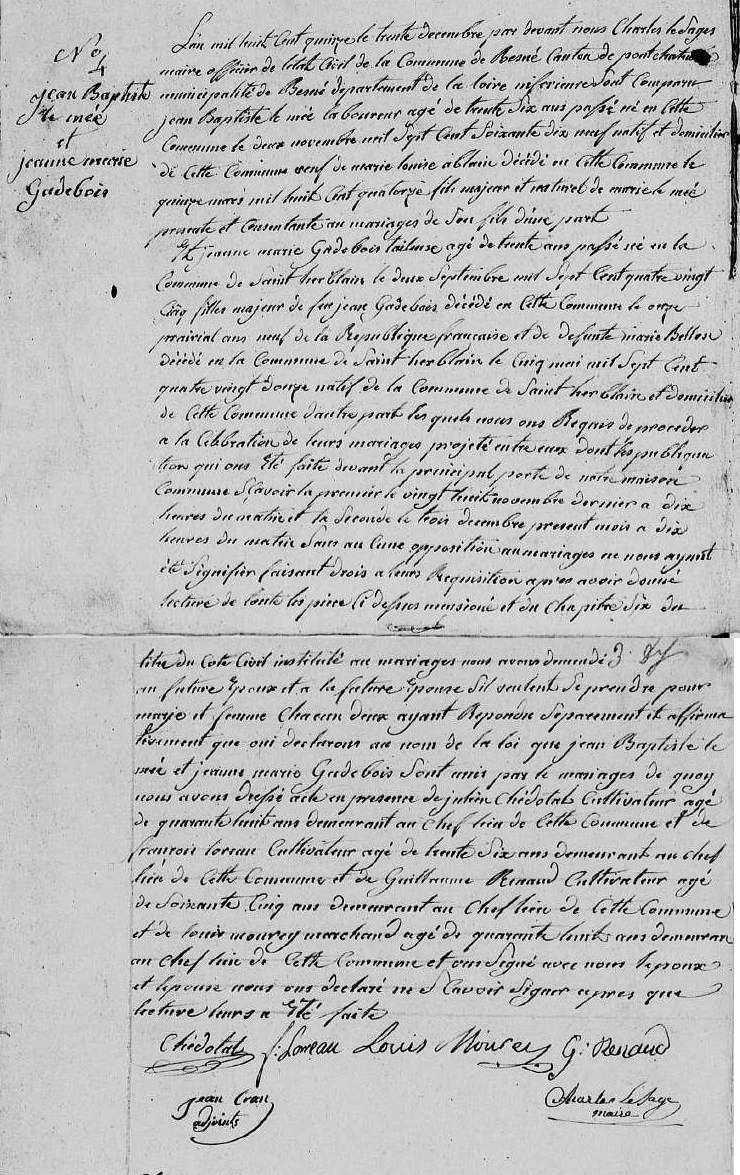 No
4
jean Baptiste
le mée
et
jeanne marie
Gadebois
L'an mil huit Cent quinze le trente decembre par devant nous Charles le Sages
maire officier de létat Civil de la Commune de Besné Canton de pontchateau
municipalité de Besné departement de la loire inferieure Sont Comparu
jean Baptiste le mée laboureur agé de trente Six ans passé né en Cette
Commune le deux novembre mil Sept Cent Soixante dix neuf natif et domicilier
de Cette Commune veuf de marie louise ablain décédé en Cette Commune le
quinze mars mil huit Cent quatorze fils majeur et naturel de marie le mée
presente et Consentante au mariages de Son fils d'une part
Et jeanne marie Gadebois tailleuse agé de trente ans passé né en la
Commune de Saint herblain le deux Septembre mil Sept Cent quatre vingt
Cinq filles majeur de feu jean Gadebois décédé en Cette Commune le onze
prairial ans neuf de la Republique francaise et de defunte marie Bellose
décédé en la Commune de Saint herblain le Cinq mai mil Sept Cent
quatre vingt douze natif de la Commune de Saint herblain et domicilier
de Cette Commune dautre part les quels nous ons Requis de proceder
a la Celebration de leurs mariages projeté entre eux dont les publica
tion qui ons Eté faite devant la principal porte de notre maison
Commune Scavoir la premier le vingt huit novembre dernier a dix
heures du matin et la Seconde le trois decembre present mois a dix
heures du matin Sans au Cune opposition au mariages ne nous ayant
été Signifier faisant drois a leurs Requisition apres avoir donné
lecture de toute les piece Ci dessus mensioné et du Chapitre Six du
titre du Cote Civil institulé au mariages nous avons demandé 3
au future Epoux et a la future Epouse Sil veulent Se prendre pour
marie et femme Chacun deux ayant Repondu Separement et affirma
tivement que oui declarons au nom de la loi que jean Baptiste le
mée et jeanne marie Gadebois Sont unis par le mariages de quoy
nous avons dressé acte en presence de julien Chédotal Cultivateur agé
de quarante huit ans demeurant au Chef lieu de Cette Commune et de
francois loreau Cultivateur agé de trente Six ans demeurant au chef
lieu de Cette Commune et de Guillaume Renaud Cultivateur agé
de Soixante Cinq ans demeurant au Chef lieu de Cette Commune
et de louis mourey marchand agé de quarante huit ans demeuran
au Chef lieu de Cette Commune et ons Signé avec nous lepoux
et lepouse nous ons declaré ne Scavoir Signer apres que
lecture leurs a Eté faite
Chédotal f: Loreau Louis Mourey G: Renaud
jean Cran
adjoints
Charles Le Sage
maire